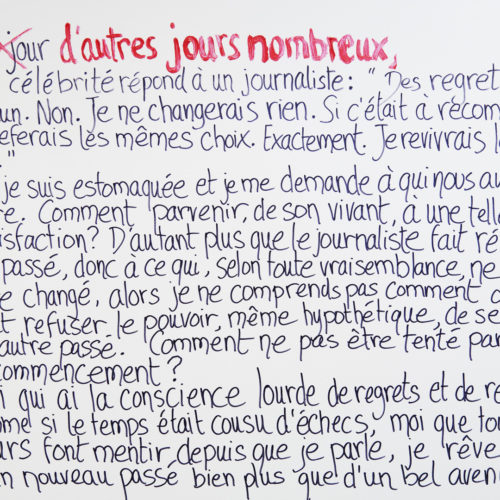 jour d'autres jours nombreux,
célébrité répond à un journaliste : " Des regret
un. Non. Je ne changerais rien. Si c'était à recom
eferais les mêmes choix. Exactement. Je revivrais l
"
je suis estomaquée et je me demande à qui nous av
re. Comment parvenir, de son vivant, à une telle
isfaction ? D'autant plus que le journaliste fait ré
passé, donc à ce qui, selon toute vraisemblance, ne
e changé, alors je ne comprends pas comment o
t refuser le pouvoir, même hypothétique, de se
autre passé. Comment ne pas être tenté par
commencement ?
i qui ai la conscience lourde de regrets et de re
me si le temps était cousu d'échecs, moi que tou
urs font mentir depuis que je parle, je rêve
n nouveau passé bien plus que d'un bel aven